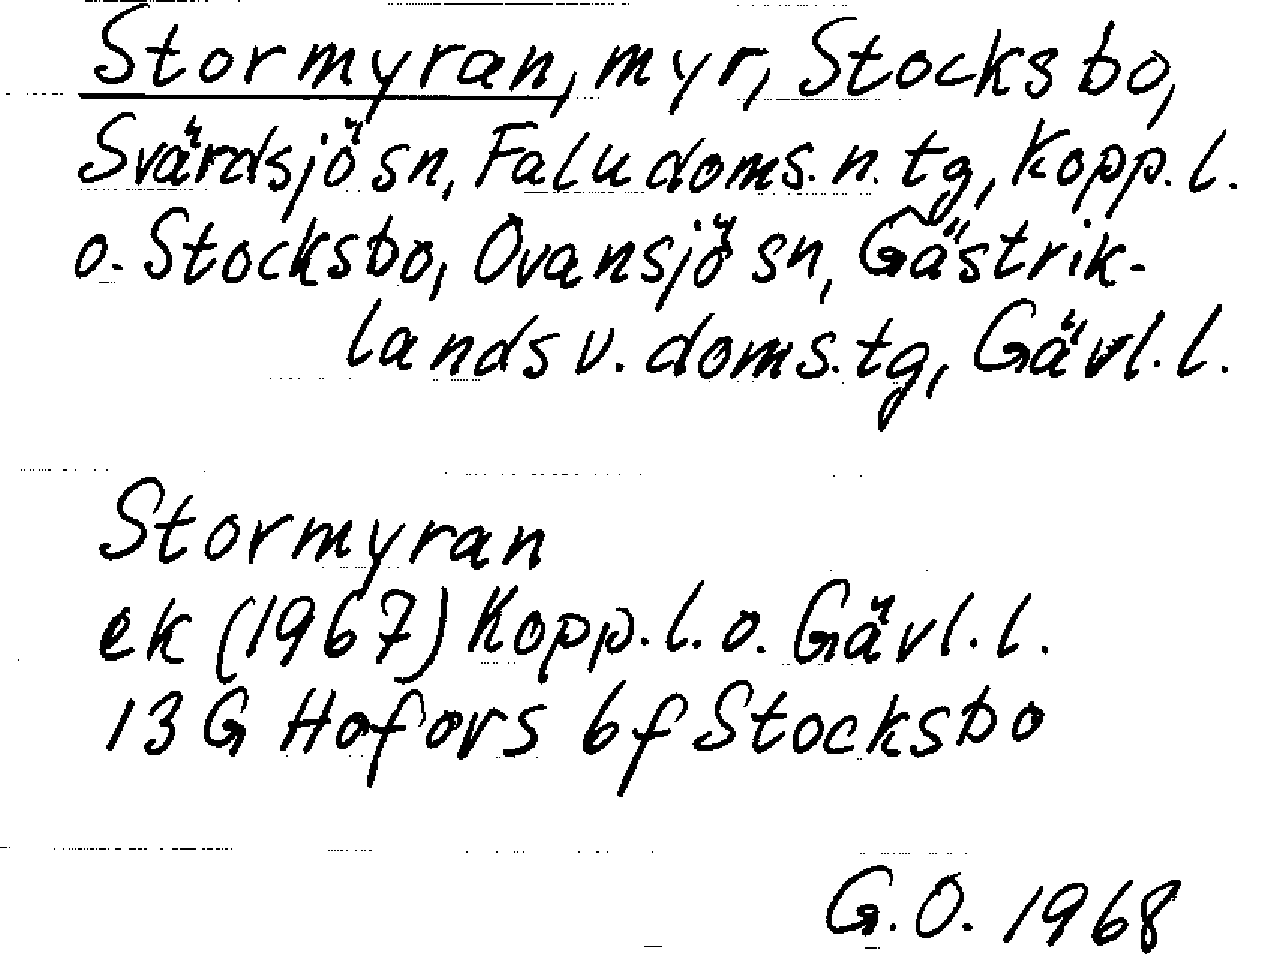 Stormyran, myr, Stocksbo,
Svärdsjö sn, Falu doms.n. tg, Kopp. l.
o. Stocksbo, Ovansjö sn, Gästrik-
lands v. doms.tg, Gävl. l.
Stormyran
ek (1967) Kopp. l. o. Gävl. l.
13 G Hofors 6f Stocksbo
G.O. 1968